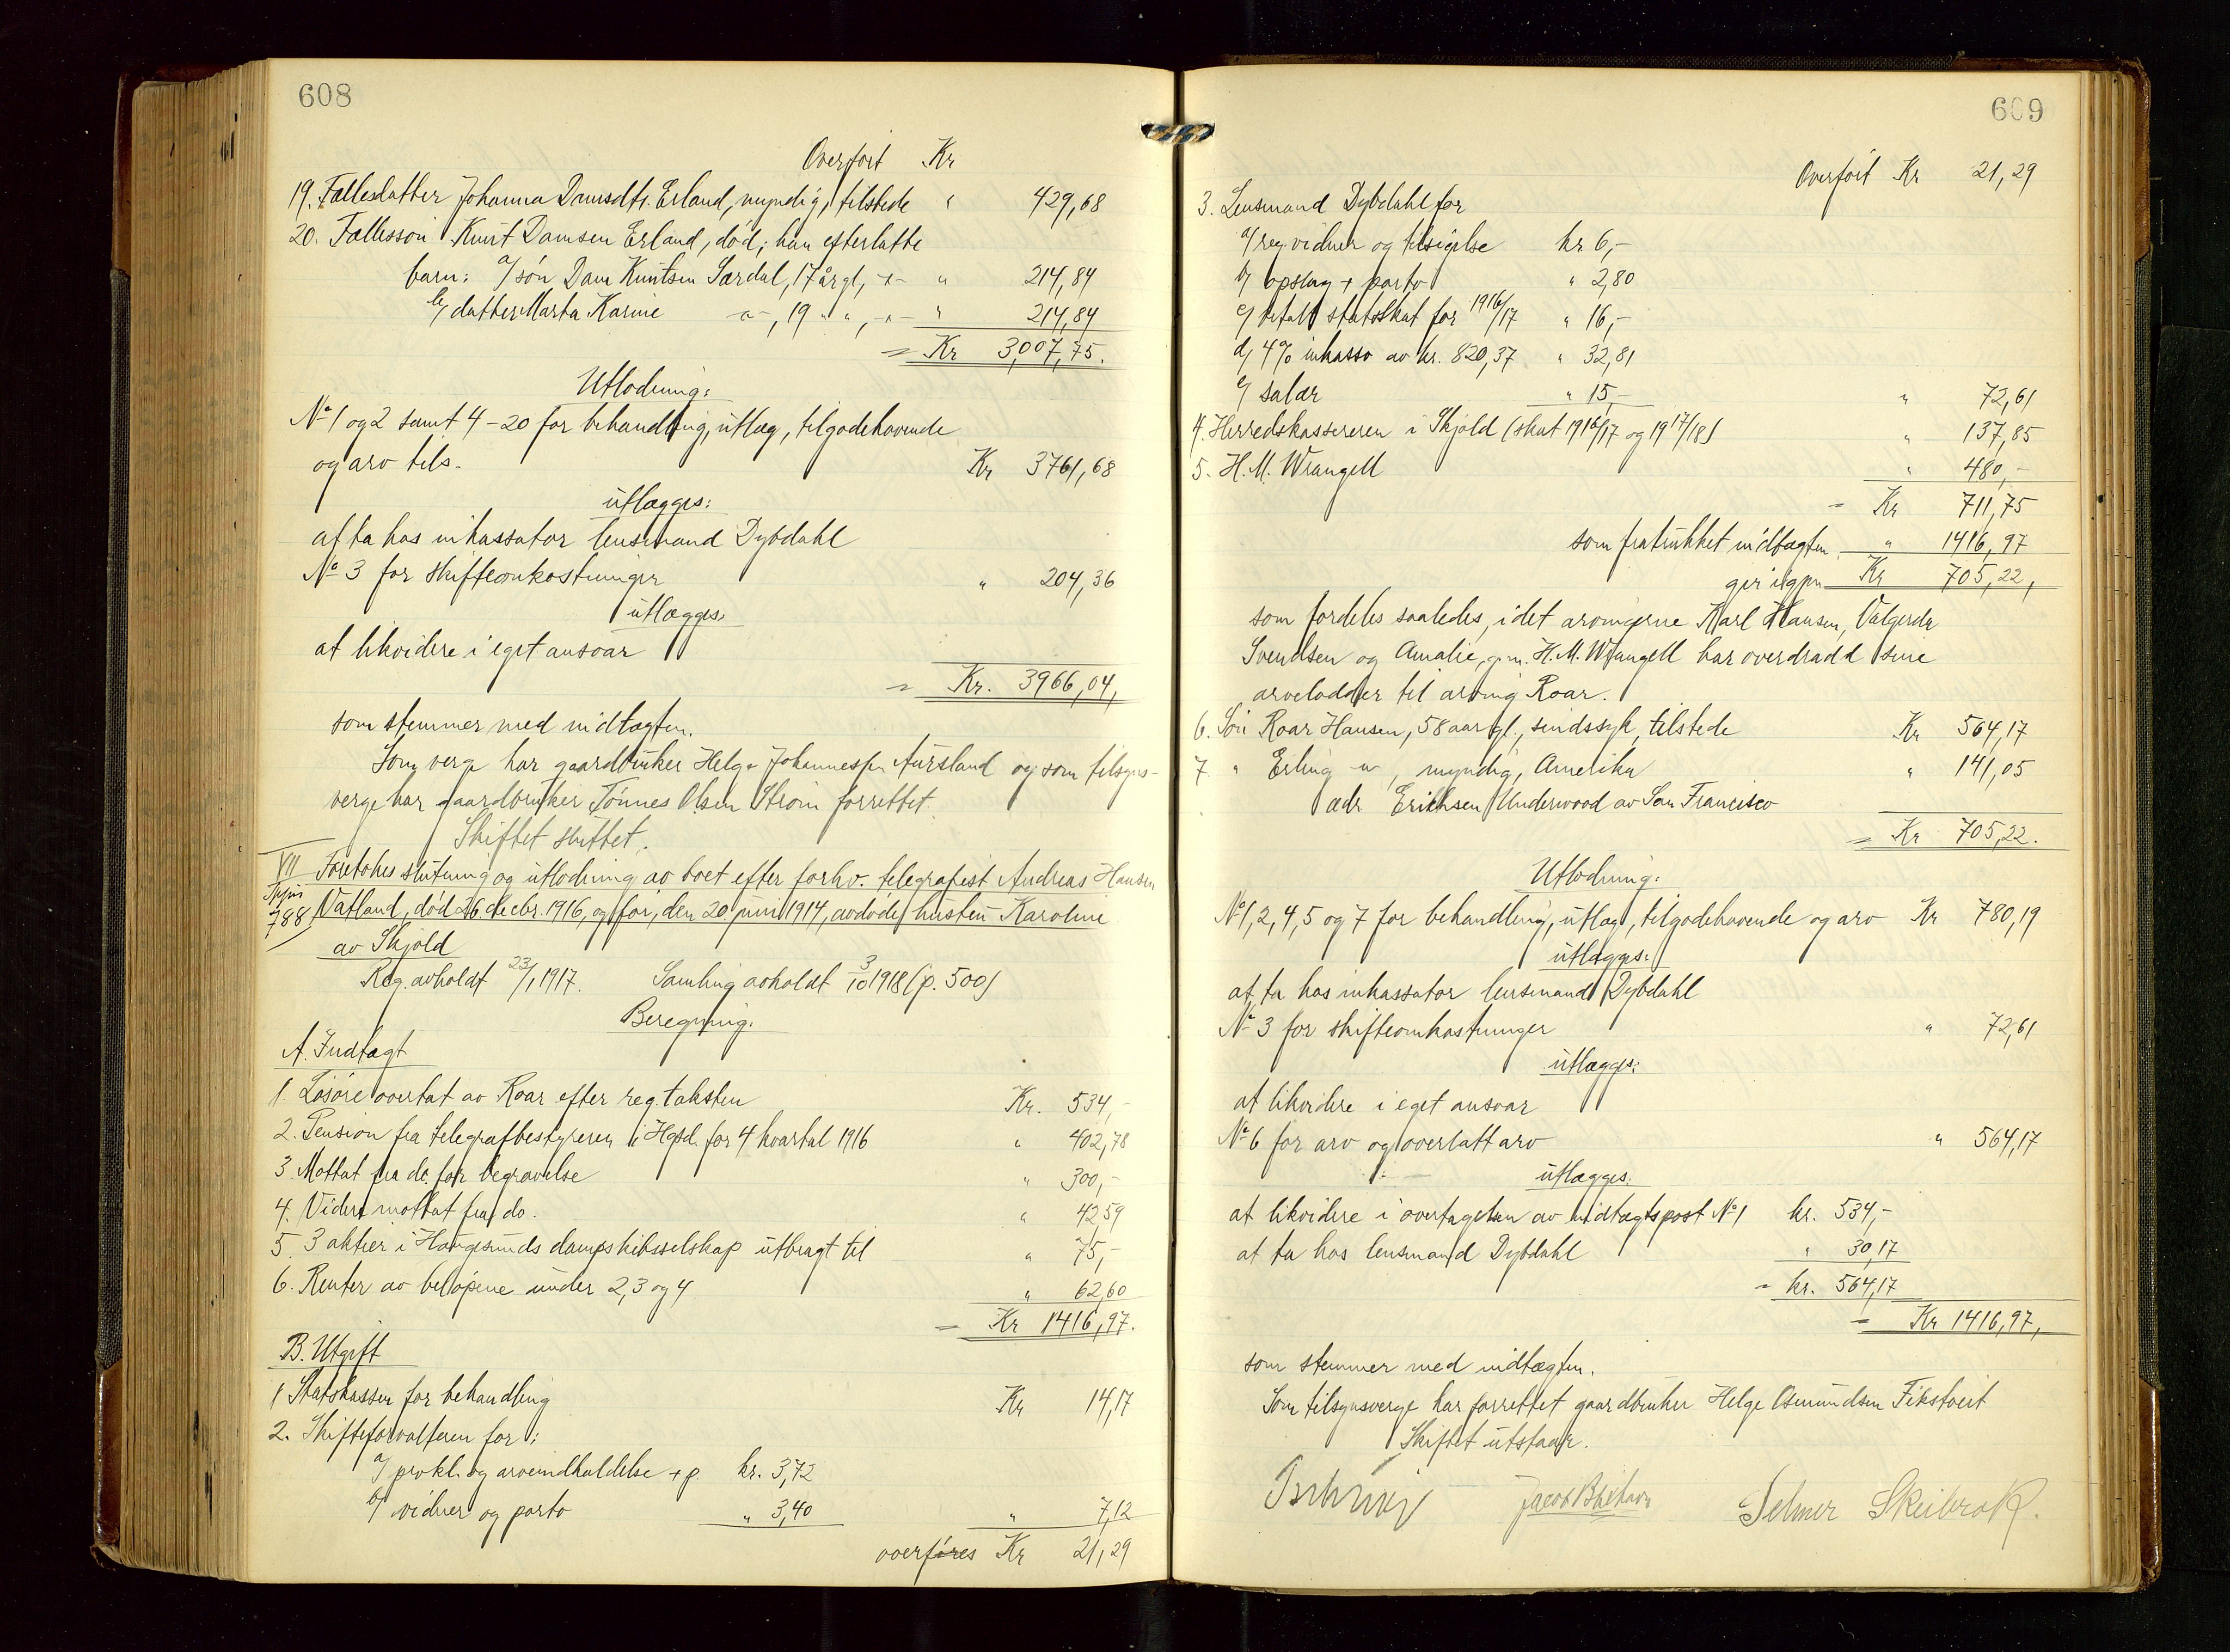 608
Overført Kr
19. Fællesdatter Johanna Damsdtr. Erland, myndig, tilstede " 429,68
20. Fællessøn Knut Damsen Erland, død; han efterlatte
barn: a/ søn Dam Kuntsen Særdal, 17 årgl, -"- " 214,84
b/ datter Marta Karine -"-, 19 " ", -"- " 214,84
= Kr 3,007,75.
Utlodning:
No 1 og 2 samt 4-20 for behandling, utlæg, tilgodehavende
og arv tils. Kr 3761,68
utlægges:
at ta hos inkassator lensmand Dybdahl
No 3 for skifteomkostninger " 204,36
utlægges:
at likvidere i eget ansvar
= Kr. 3966,04,
som stemmer med indtægten.
Som verge har gaardbruker Helge Johannesen Aursland og som tilsyns-
verge har gaardbruker Tønnes Olsen Strøm forrettet.
Skiftet sluttet.
VII Foretokes slutning og utlodning av boet efter forhv. telegrafist Andreas Hansen
788 Vatland, død 26 decbr. 1916, og før, den 20 juni 1914, avdøde hustru Karoline
av Skjold
Reg. avholdt 23/1 1917. Samling avholdt 3/10 1918 (p. 500)
Beregning.
A. Indtægt
1. Løsøre overtat av Roar efter reg. taksten Kr. 534,-
2. Pension fra telegrafbestyreren i Hgsd. for 4 kvartal 1916 " 402,78
3. Mottat fra do. for begravelse " 300,-
4. Videre mottat fra do. " 42,59
5. 3 aktier i Haugesunds dampskibsselskap utbragt til " 75,-
6. Renter av beløpene under 2, 3 og 4 " 62,60
= Kr 1416,97.
B. Utgift
1 Statskassen for behandling Kr 14,17
2. Skifteforvalteren for:
a/ prokl. og arveindkaldelse + p. kr. 3,72
b/ vidner og porto " 3,40 " 7,12
overføres Kr 21,29
609
Overført Kr 21,29
3. Lensmand Dybdahl for
a/ reg. vidner og tilsigelse kr 6,-
b/ opslag + porto " 2,80
c/ betalt statsskat for 1916/17 " 16,-
d/ 4% inkasso av kr. 820,37 " 32,81
e/ salær " 15,- " 72,61
4. Herredskassereren i Skjold (skat 1916/17 og 1917/18) " 137,85
5. H. M. Wrangell " 480,-
= Kr 711,75
som fratrukket indtægten " 1416,97
gir igjen Kr 705,22,
som fordeles saaledes, idet arvingerne Karl Hansen, Valgerda
Svendsen og Amalie, g.m. H. M. Wrangell har overdradd sine
arvelodder til arving Roar.
6. Søn Roar Hansen, 58 aar gl., sindssyk, tilstede Kr 564,17
7. " Erling -"-, myndig, Amerika " 141,05
adr. Erichsen Underwood av San Francisco
= Kr 705,22.
Utlodning:
No 1, 2, 4, 5 og 7 for behandling, utlæg, tilgodehavende og arv Kr 780,19
utlægges:
at ta hos inkassator lensmand Dybdahl
No 3 for skifteomkostninger " 72,61
utlægges:
at likvidere i eget ansvar
No 6 for arv og overlatt arv " 564,17
utlægges:
at likvidere i overtagelsen av indtægtspost No 1 kr. 534,-
at ta hos lensmand Dybdahl " 30,17
= kr. 564,17
= Kr 1416,97,
som stemmer med indtægten.
Som tilsynsverge har forrettet gaardbruker Helge Asmundsen Fikstveit
Skiftet utstaar.
Selmer Skeibrok.